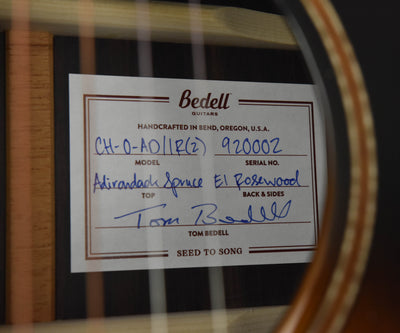 Bedell
GUITARS
HANDCRAFTED IN BEND, OREGON, U.S.A.
CH-O-AD/IR(2) 920002
MODEL SERIAL NO.
Adirondack Spruce EI Rosewood
TOP BACK & SIDES
Tom Bedell
TOM BEDELL
SEED TO SONG